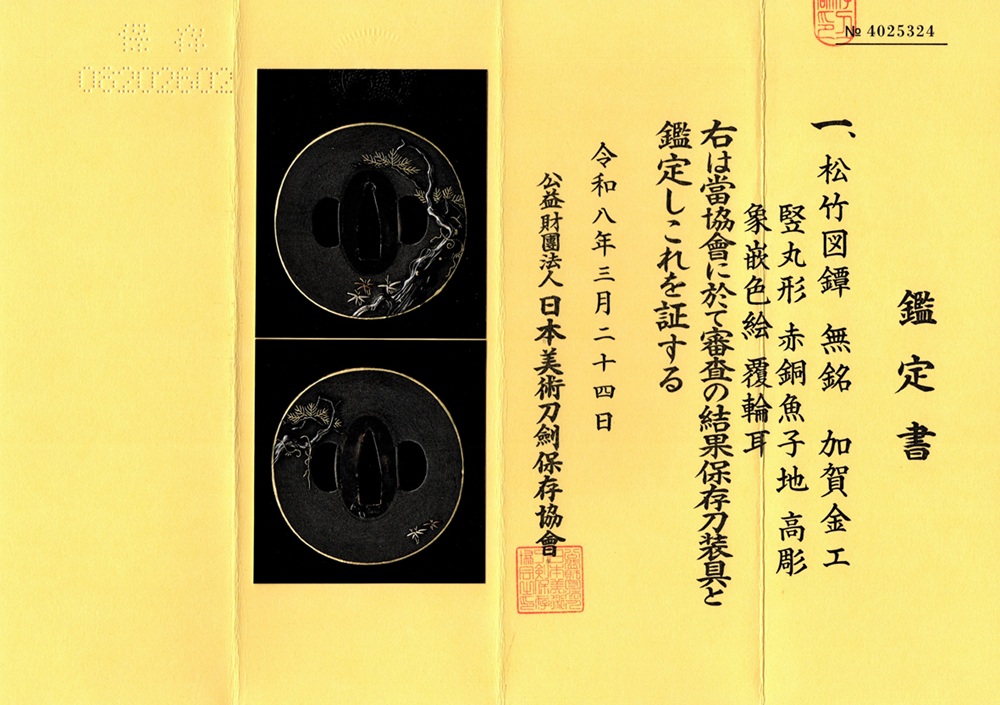 № 4025324
鑑定書
一、松竹図鐔 無銘 加賀金工
竪丸形 赤銅魚子地 高彫
象嵌色絵 覆輪耳
右は當協會に於て審査の結果保存刀装具と
鑑定しこれを証する
令和八年三月二十四日
公益財團法人 日本美術刀劍保存協會
保存
08202602